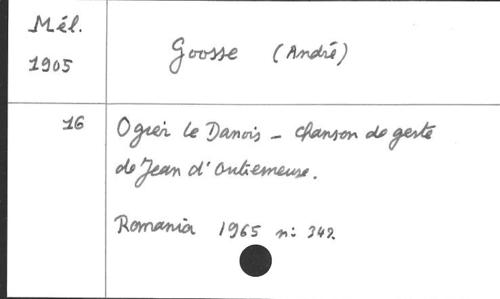 Mél.
1905
Goosse (André)
16
Ogier le Danois - Chanson de geste
de Jean d'Outremeuse.
Romania 1965 n: 342.